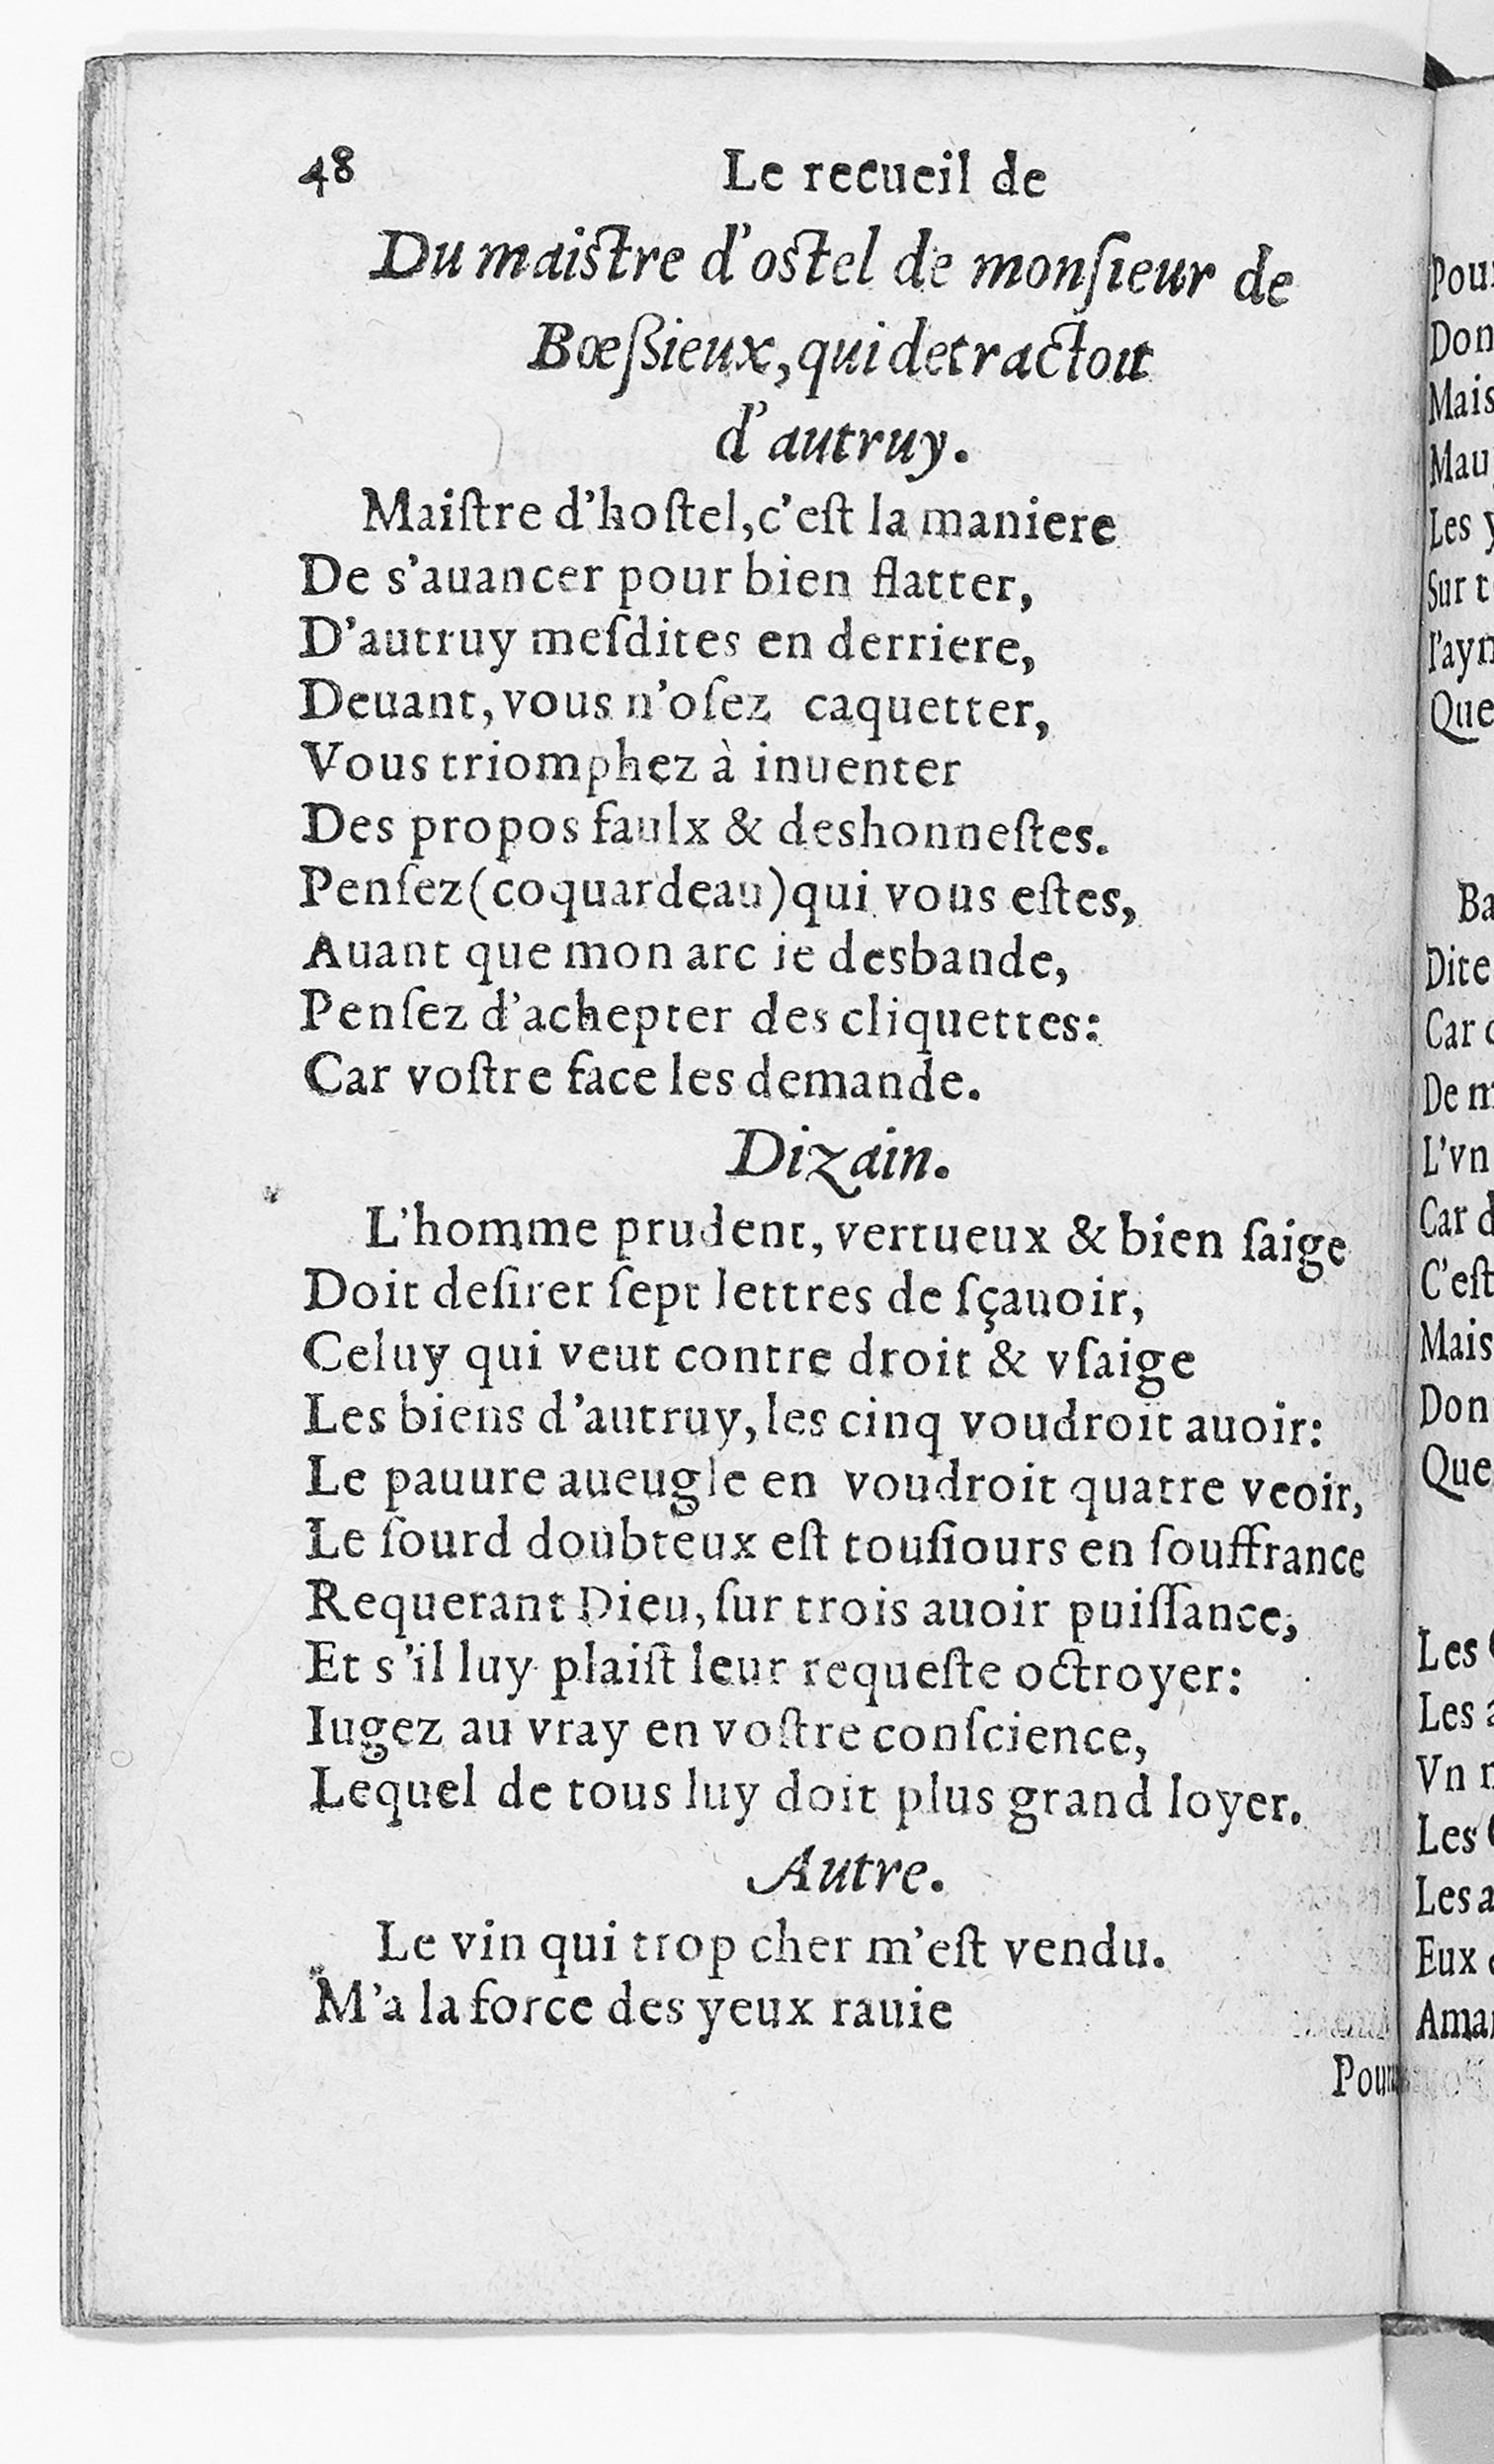 48 Le recueil de
Du maiſtre d'oſtel de monſieur de
Bœſſieux, qui detractoit
d'autruy.
Maiſtre d'hoſtel, c'eſt la maniere
De s'auancer pour bien flatter,
D'autruy meſdites en derriere,
Deuant, vous n'oſez caquetter,
Vous triomphez à inuenter
Des propos faulx & deshonneſtes.
Penſez (coquardeau) qui vous eſtes,
Auant que mon arc ie desbande,
Penſez d'achepter des cliquettes:
Car voſtre face les demande.
Dizain.
L'homme prudent, vertueux & bien ſaige
Doit deſirer ſept lettres de ſçauoir,
Celuy qui veut contre droit & vſaige
Les biens d'autruy, les cinq voudroit auoir:
Le pauure aueugle en voudroit quatre veoir,
Le ſourd doubteux eſt touſiours en ſouffrance
Requerant Dieu, ſur trois auoir puiſſance,
Et s'il luy plaiſt leur requeſte octroyer:
Iugez au vray en voſtre conſcience,
Lequel de tous luy doit plus grand loyer.
Autre.
Le vin qui trop cher m'eſt vendu.
M'a la force des yeux rauie
Pour
Don
Mais
Les
Sur
Que
Dite
Car
De
L'vn
Car
C'eſt
Mais
Don
Que
Les
Les
Vn
Les
Les
Eux